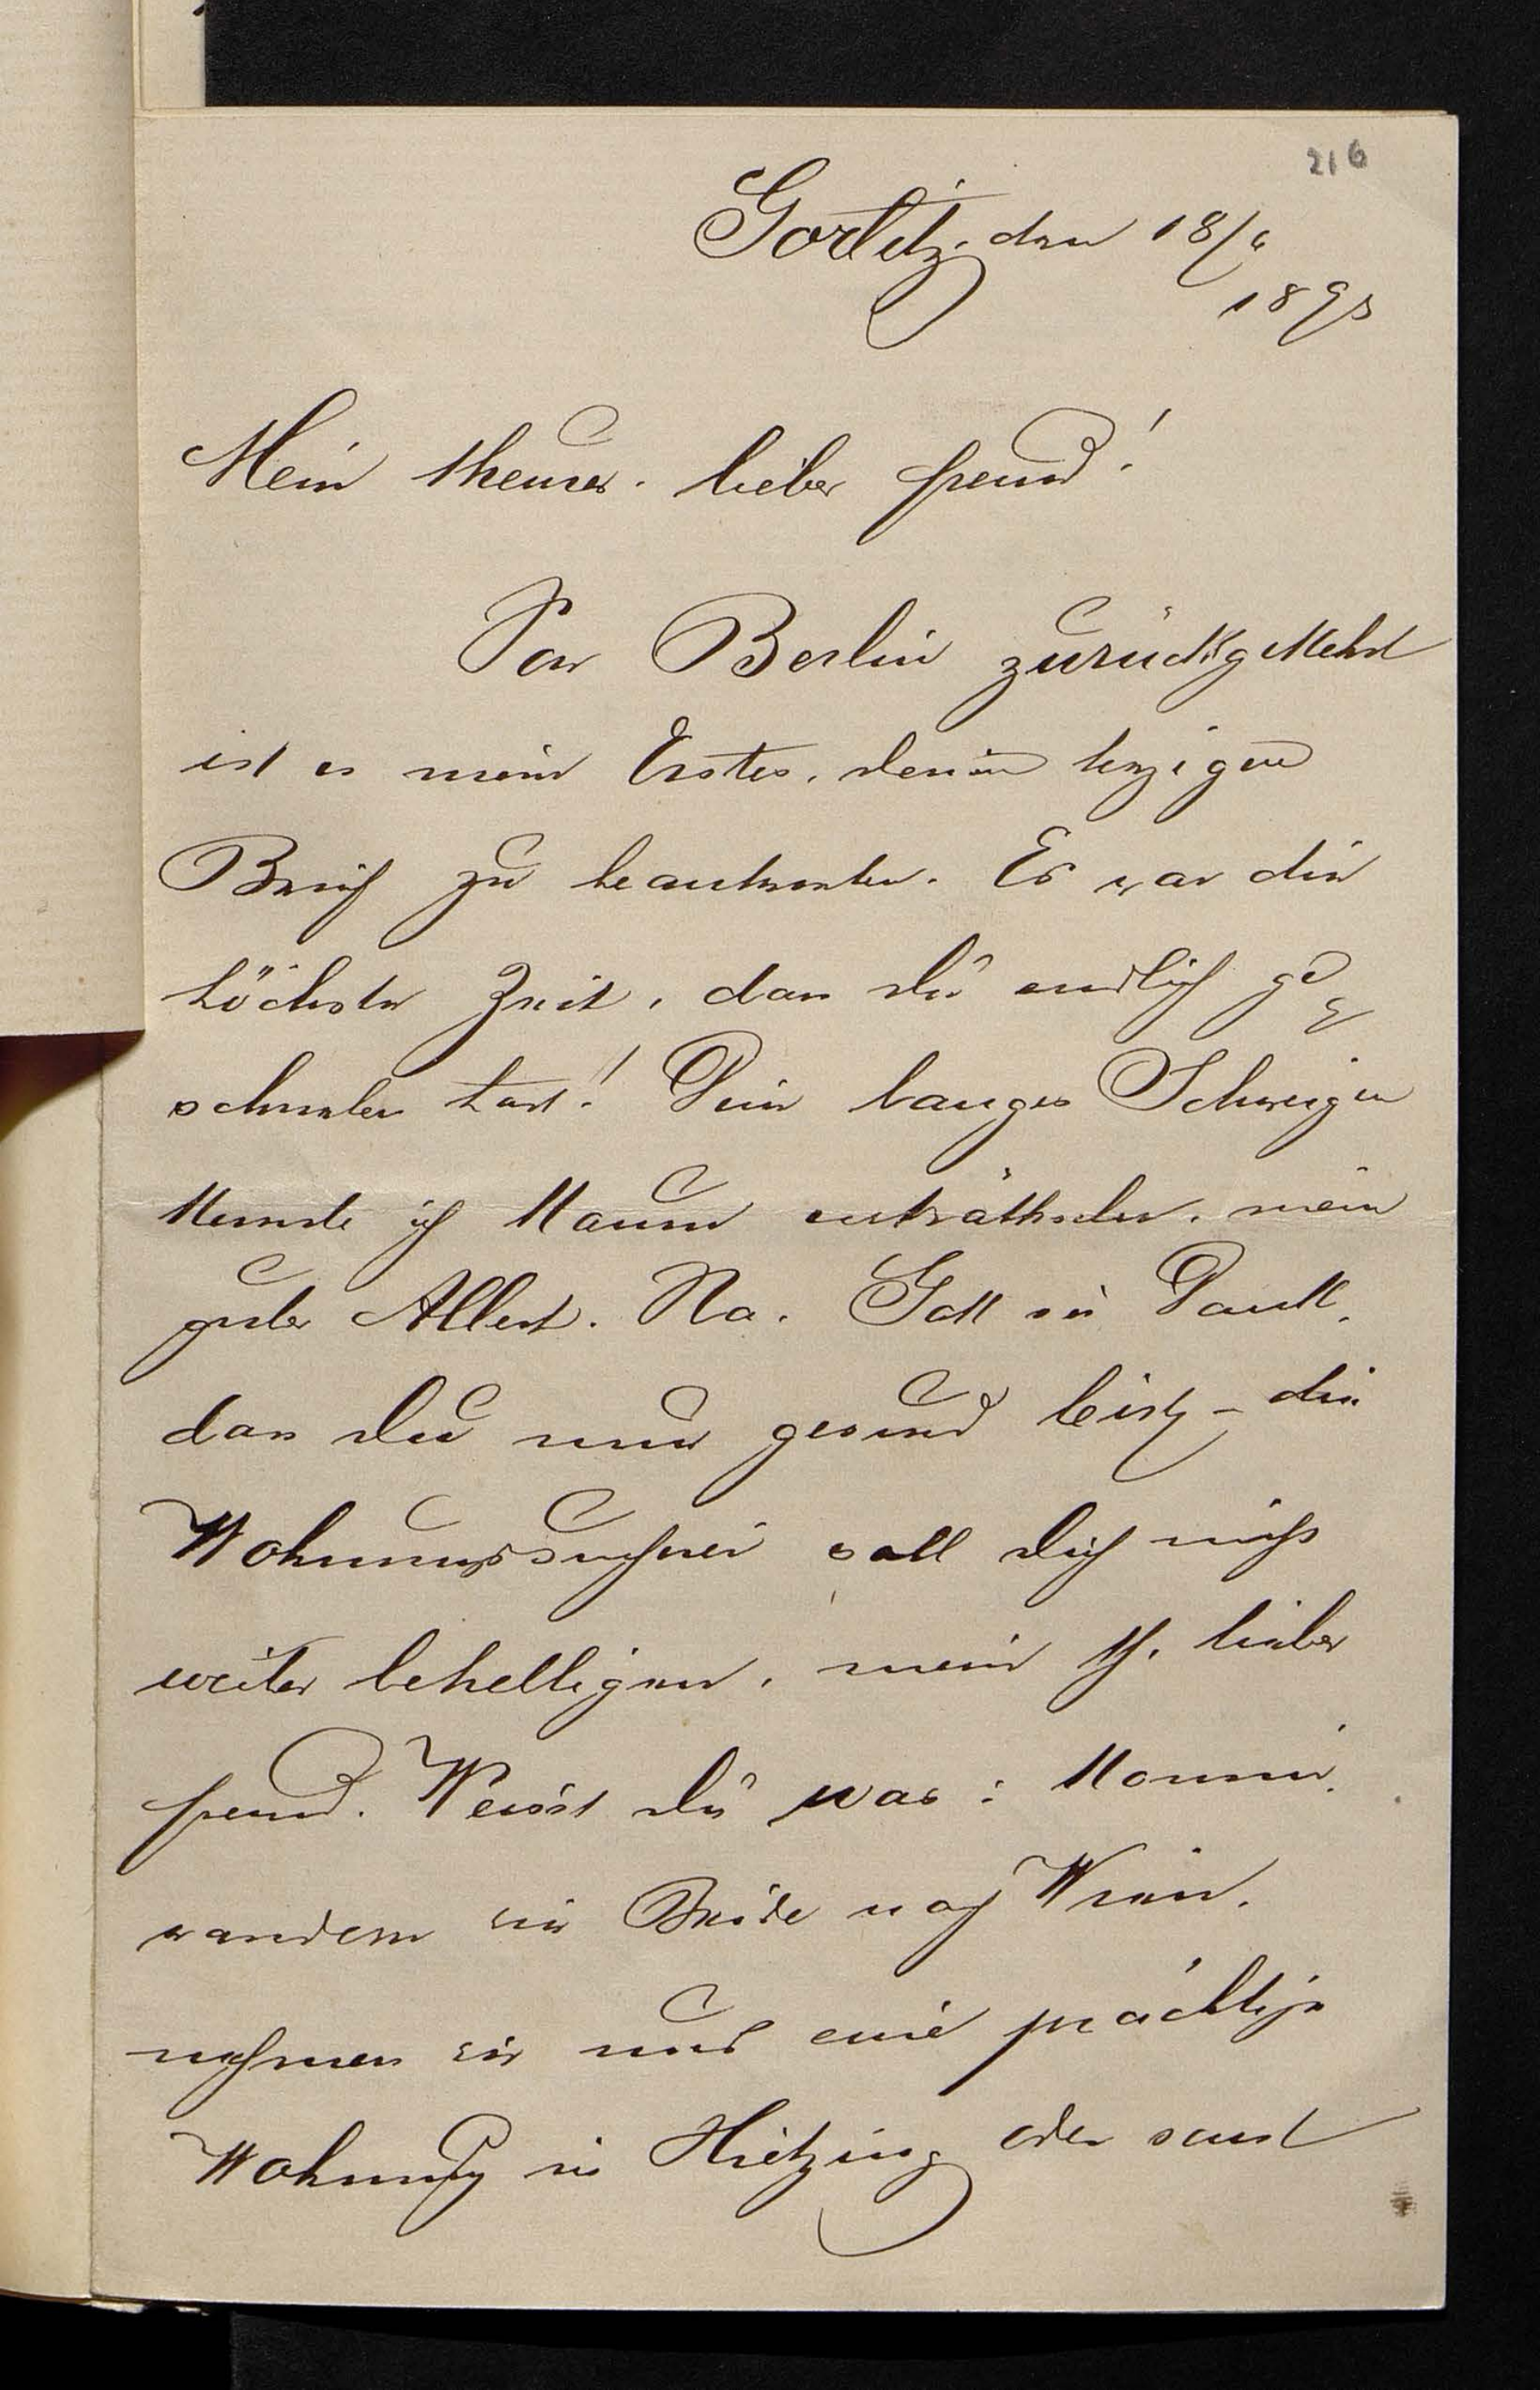 216
Görlitz, den 18/6
1893
Mein theurer, lieber Freund!
Von Berlin zurückgekehrt
ist es mein Erstes, deinen herzigen
Brief zu beantworten. Es war die
höchste Zeit, dass du endlich ge-
schrieben hast! Dein langes Schweigen
konnte ich kaum enträthseln, mein
guter Albert. Na, Gott sei Dank,
dass du nur gesund bist, – die
Wohnungssucherei soll dich nicht
weiter behelligen, mein th. lieber
Freund. Weisst du was: Komm,
wandern wir Beide nach Wien,
nehmen wir uns eine prächtige
Wohnung in Hietzing oder sonst